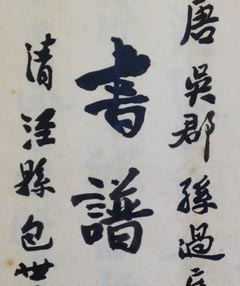 唐吳郡孫過庭
書譜
清涇縣包世